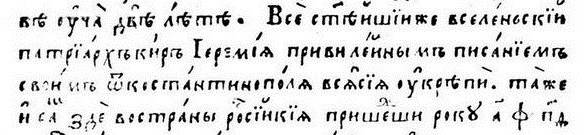 вѣ ѹ҆ча̀ двѣ̀ лѣ́тѣ. Всѐ ст҃ѣ́йшїи же вселе́ньскїи
патрїа́рхъ ки́ръ І҆еремі́ѧ привиле́йнымъ писа́нїемъ
свои́мъ ѿ костантино́полѧ всѧ̀ сїѧ̀ ѹ҆крѣпѝ. та́же
и҆ са́мъ здѐ во страны̀ росі́йскїѧ прише́дши ро́кѹ а҃ ф п҃д